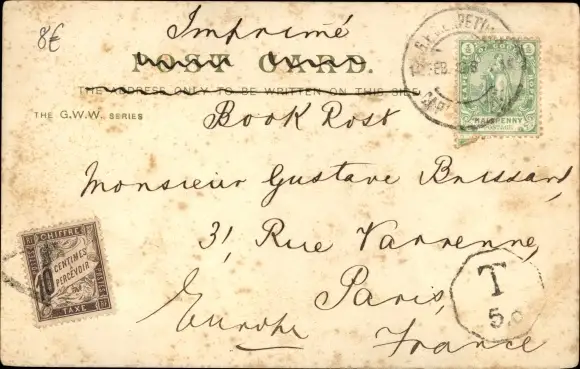 8€
Imprimé
POST CARD.
THE ADDRESS ONLY TO BE WRITTEN ON THIS SIDE
THE G.W.W. SERIES
Book Post
HALFPENNY
POSTAGE
Monsieur Gustave Brissard,
31, Rue Varenne,
Paris,
Europe France
CHIFFRE
10 CENTIMES
À
PERCEVOIR
TAXE
T
5.c